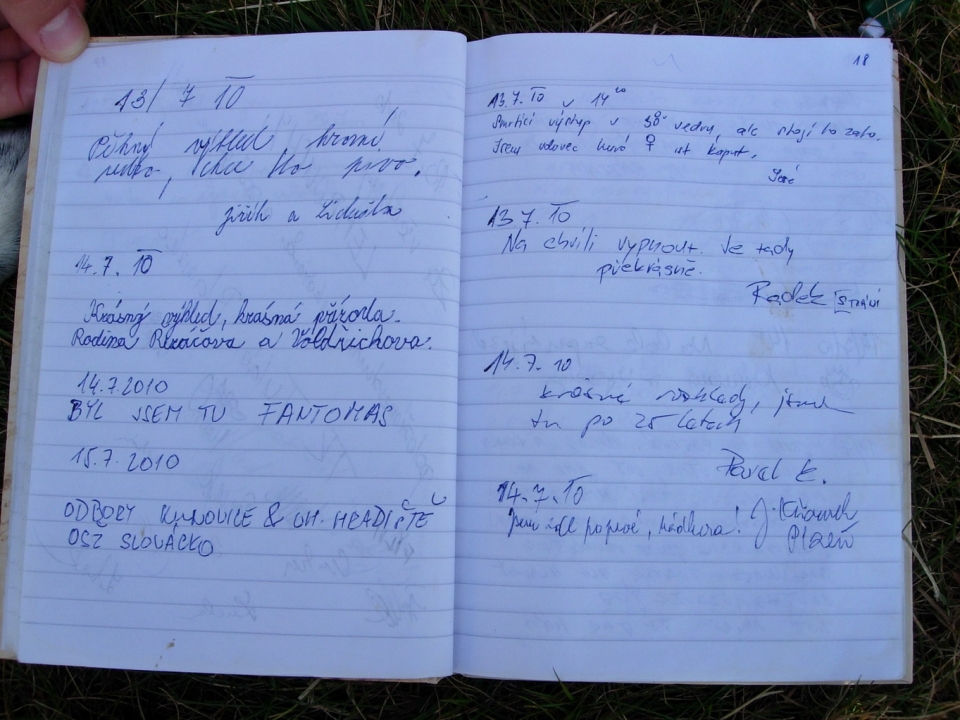 13/ 7 10
Pěkný výhled hromí
chce to pivo.
Jiřík a Liduška
14.7.10
Krásný výhled, krásná příroda.
Rodina a Voldřichova.
14.7 2010
BYL JSEM TU FANTOMAS
15.7.2010
ODBORY KUNOVICE & UH. HRADIŠTĚ
OSŽ SLOVÁCKO
18
13.7.10 v 14
Smrtící výstup v 38° vedru, ale stojí to zato.
Jsem vdovec ♀ ist kaput.
13 7. 10
Na chvíli vypnout. Je tady
překrásně.
Radek STRÁNÍ
14.7.10
krásné rozhledy, jsem
tu po 25 letech
Pavel K.
14.7.10
Jsem zde poprvé, nádhera! J.
Plzeň